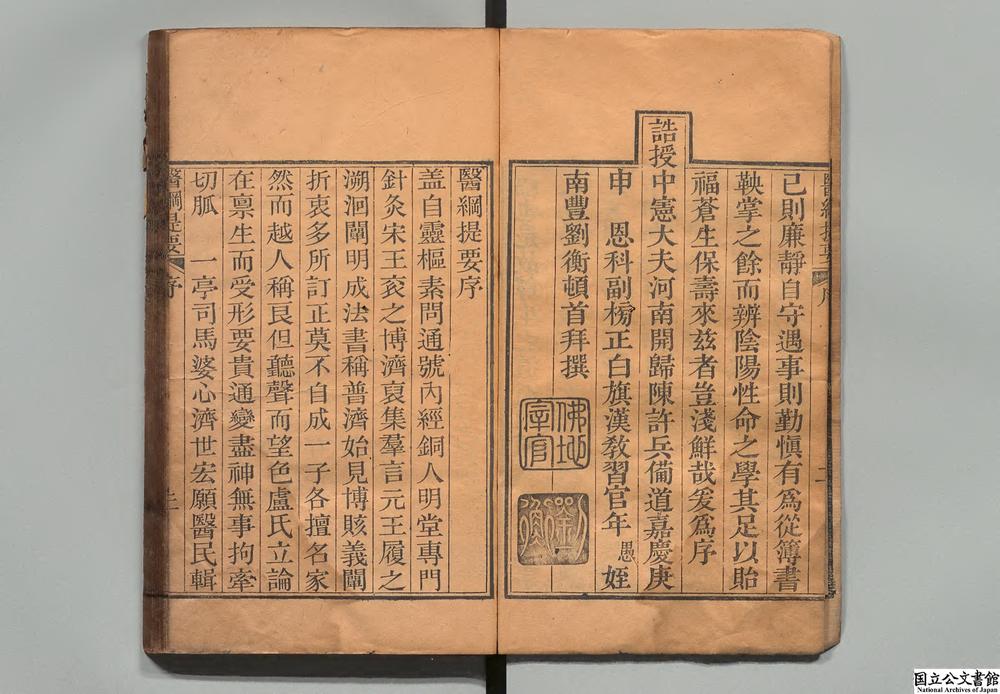 己則廉靜自守遇事則勤愼有爲從簿書
鞅掌之餘而辨陰陽性命之學其足以貽
福蒼生保壽來兹者豈淺鮮哉爰爲序
誥授中憲大夫河南開歸陳許兵備道嘉慶庚
申　恩科副榜正白旗漢敎習官年愚姪
南豐劉衡頓首拜撰
佛地
宰官
醫綱提要　序
醫綱提要序
盖自靈樞素問通號內經銅人明堂專門
針灸宋王衮之博濟裒集羣言元王履之
溯洄闡明成法書稱普濟始見博賅義闡
折衷多所訂正莫不自成一子各擅名家
然而越人稱良但聽聲而望色盧氏立論
在禀生而受形要貴通變盡神無事拘牽
切脈　一亭司馬婆心濟世宏願醫民輯
醫綱提要　序
国立公文書館
National Archives of Japan